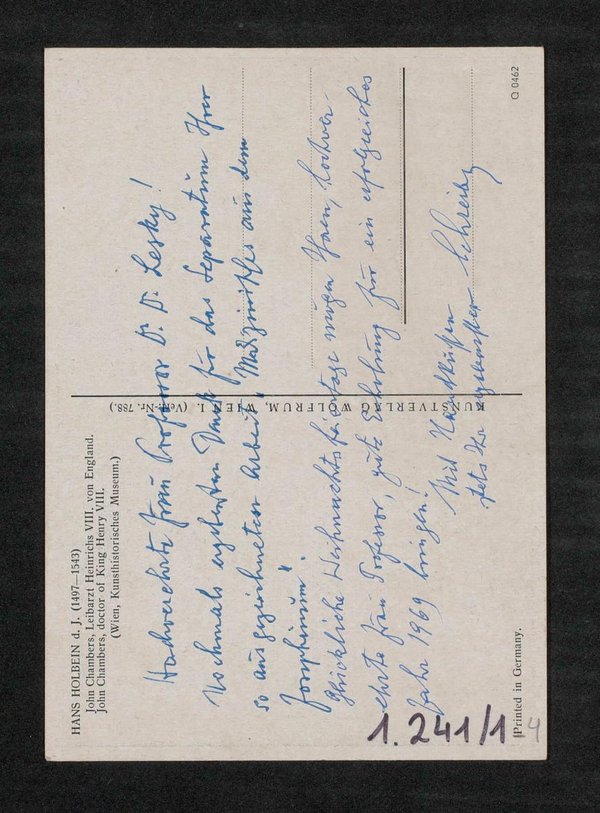 HANS HOLBEIN d. J. (1497—1543)
John Chambers, Leibarzt Heinrichs VIII. von England.
John Chambers, doctor of King Henry VIII.
(Wien, Kunsthistorisches Museum.)
Hochverehrte Frau Professor Dr. Dr. Lesky!
Nochmals ergebensten Dank für das Separatum Ihrer
so ausgezeichneten Arbeit „Medizinisches aus dem
Josephinum".
Glückliche Weihnachtsfeiertage mögen Ihnen, hochver-
ehrte Frau Professor, gute Erholung für ein erfolgreiches
Jahr 1969 bringen!
Mit Handküssen
stets Ihr
KUNSTVERLAG WOLFRUM, WIEN I. (Verl.-Nr. 788.)
Printed in Germany.
Q 0462
1.241/1
4